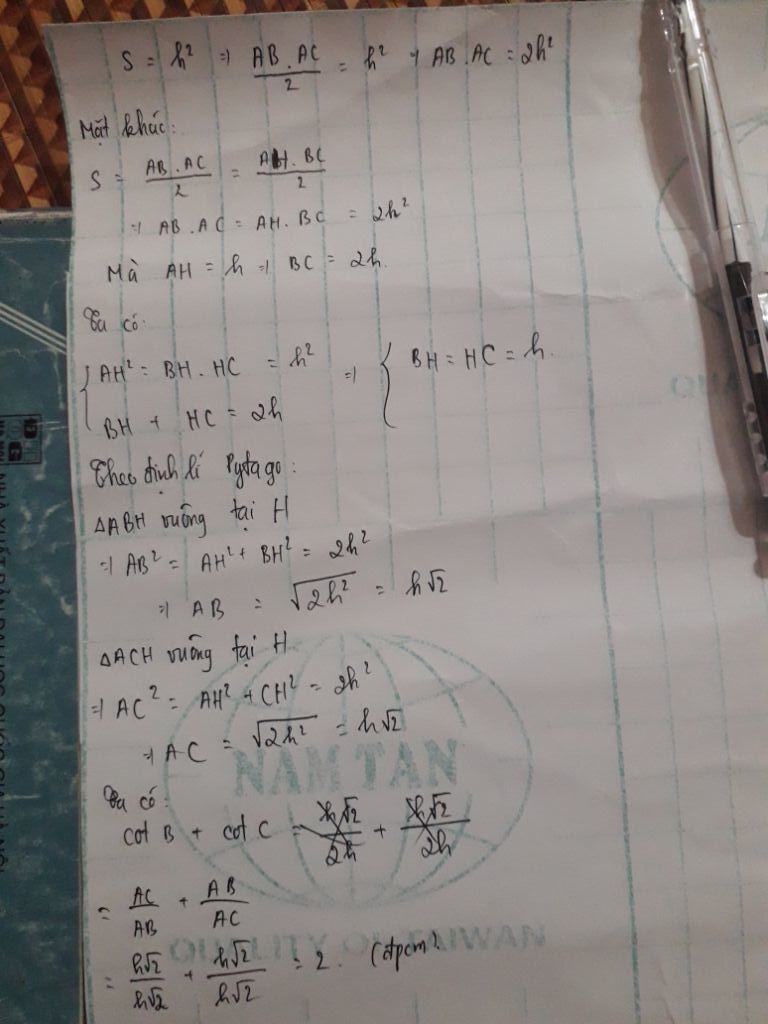 S = h² => AB.AC/2 = h² => AB.AC = 2h²
Mặt khác:
S = AB.AC/2 = AH.BC/2
=> AB.AC = AH.BC = 2h²
Mà AH = h => BC = 2h.
Ta có:
{ AH² = BH.HC = h² => { BH = HC = h.
BH + HC = 2h
Theo định lí Pytago:
ΔABH vuông tại H
=> AB² = AH² + BH² = 2h²
=> AB = √2h² = h√2
ΔACH vuông tại H
=> AC² = AH² + CH² = 2h²
=> AC = √2h² = h√2
NAM TAN
Ta có:
cot B + cot C = h√2/2h + h√2/2h
= AC/AB + AB/AC
QUALITY OF TAIWAN
= h√2/h√2 + h√2/h√2 = 2. (đpcm)